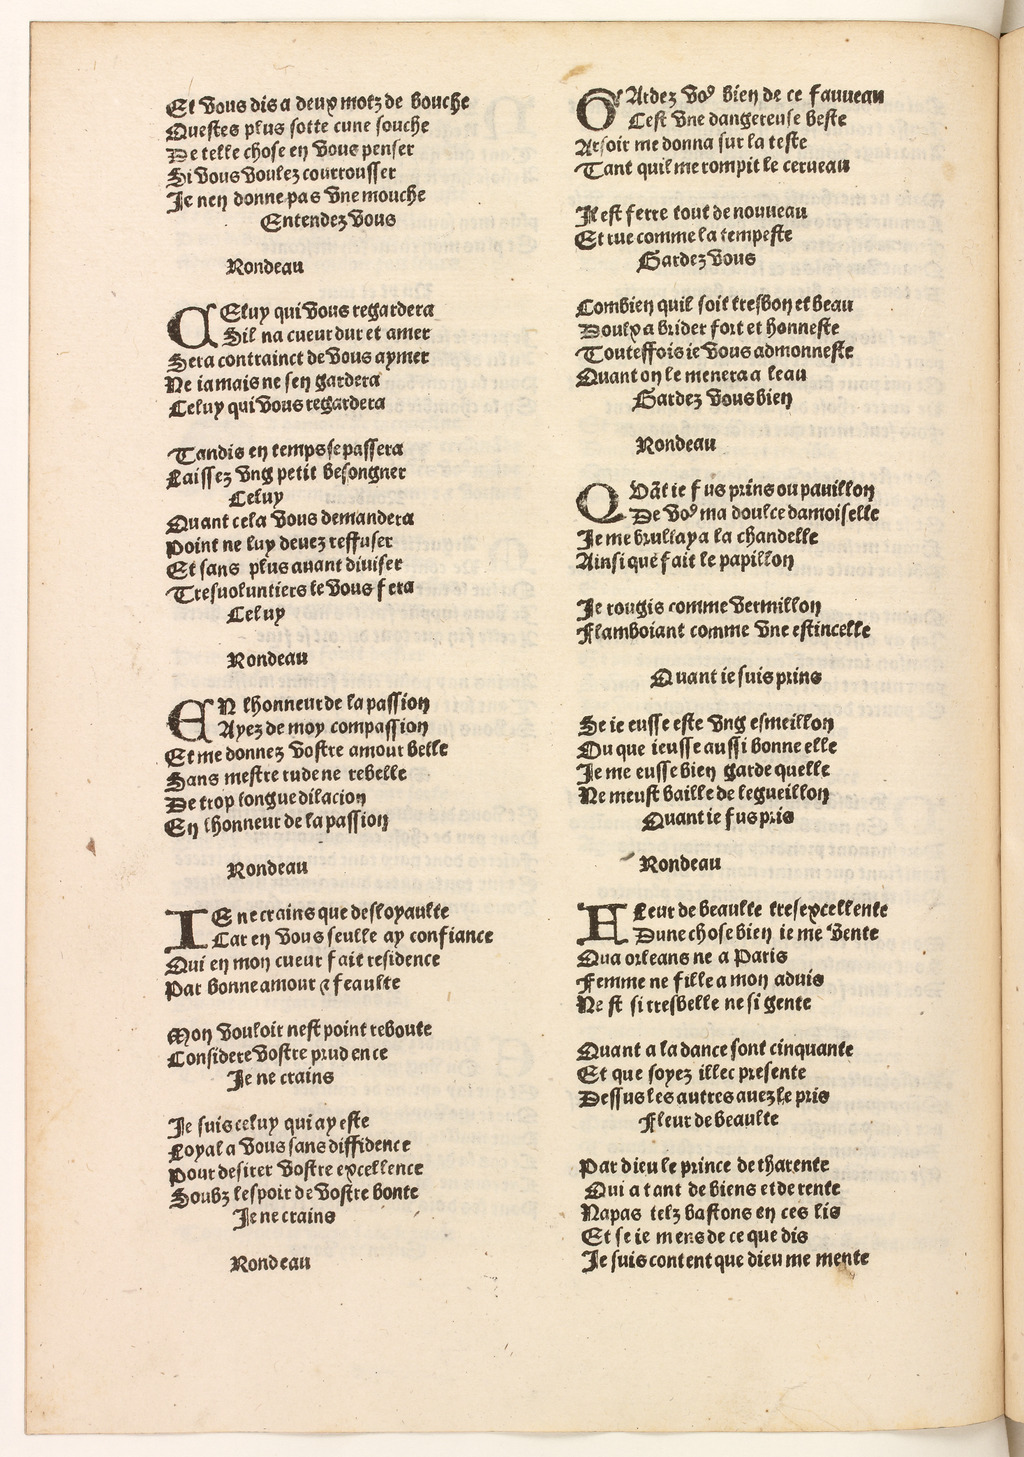 Et vous dis a deux motz de bouche
Questes plus sotte cune souche
De telle chose en vous penser
Si vous voulez courrousser
Je nen donne pas vne mouche
Entendez vous
Rondeau
CEluy qui vous regardera
Sil na cueur dur et amer
Sera contrainct de vous aymer
Ne iamais ne sen gardera
Celuy qui vous regardera
Tandis en temps se passera
Laissez vng petit besongner
Celuy
Quant cela vous demandera
Point ne luy deuez reffuser
Et sans plus auant diuiser
Tresuoluntiers le vous fera
Celuy
Rondeau
EN lhonneur de la passion
Ayez de moy compassion
Et me donnez vostre amour belle
Sans mestre rude ne rebelle
De trop longue dilacion
En lhonneur de la passion
Rondeau
IE ne crains que desloyaulte
Car en vous seulle ay confiance
Qui en mon cueur fait residence
Par bonne amour ⁊ feaulte
Mon vouloir nest point reboute
Considere vostre prudence
Je ne crains
Je suis celuy qui ay este
Loyal a vous sans diffidence
Pour desirer vostre excellence
Soubz lespoir de vostre bonte
Je ne crains
Rondeau
GArdez voꝰ bien de ce fauueau
Cest vne dangereuse beste
Arsoir me donna sur la teste
Tant quil me rompit le cerueau
Il est ferre tout de nouueau
Et rue comme la tempeste
Gardez vous
Combien quil soit tresbon et beau
Doulx a brider fort et honneste
Touteffois ie vous admonneste
Quant on le menera a leau
Gardez vous bien
Rondeau
QVãt ie fus prins ou pauillon
De voꝰ ma doulce damoiselle
Je me brullay a la chandelle
Ainsi que fait le papillon
Je rougis comme vermillon
Flamboiant comme vne estincelle
Quant ie suis prins
Se ie eusse este vng esmeillon
Ou que ieusse aussi bonne elle
Je me eusse bien garde quelle
Ne meust baille de legueillon
Quant ie fus pris
Rondeau
FLeur de beaulte tresexcellente
Dune chose bien ie me vente
Qua orleans ne a Paris
Femme ne fille a mon aduis
Ne st si tresbelle ne si gente
Quant a la dance sont cinquante
Et que soyez illec presente
Dessus les autres auez le pris
Fleur de beaulte
Par dieu le prince de tharente
Qui a tant de biens et de rente
Napas telz bastons en ces lis
Et se ie mens de ce que dis
Je suis content que dieu me mente